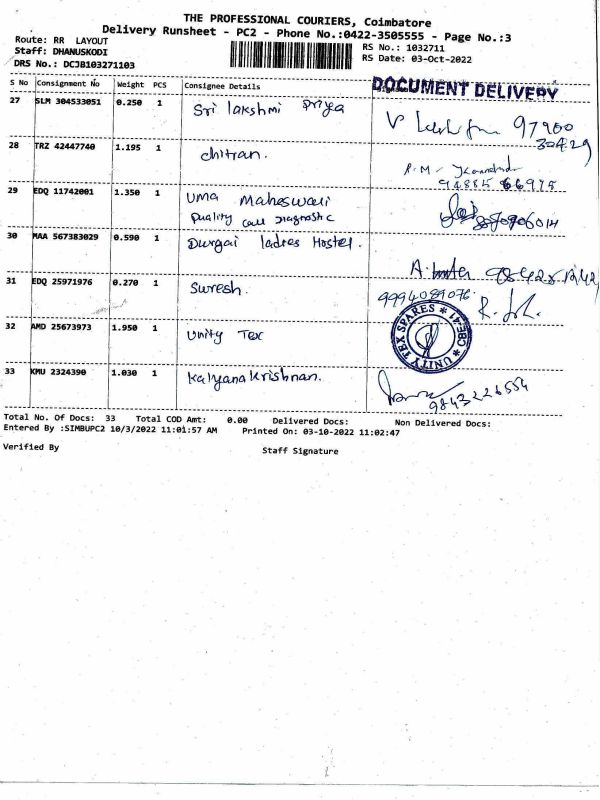 THE PROFESSIONAL COURIERS, Coimbatore
Delivery Runsheet - PC2 - Phone No.:0422-3505555 - Page No.:3
Route: RR LAYOUT
RS No.: 1032711
Staff: DHANUSKODI
RS Date: 03-Oct-2022
DRS No.: DCJB103271103
S No Consignment No Weight PCS Consignee Details
DOCUMENT DELIVERY
27 SLM 304533051 0.250 1 Sri lakshmi Priya
97900
30429
28 TRZ 42447740 1.195 1 chitran.
29 EDQ 11742001 1.350 1 Uma Maheswari
Quality call Diagnostic
30 MAA 567383029 0.590 1 Durgai ladies Hostel.
31 EDQ 25971976 0.270 1 Suresh.
9994089076
32 AMD 25673973 1.950 1 Unity Tex
UNITY TEX SPARES * CBE-41 *
33 KMU 2324390 1.030 1 Kalyanakrishnan.
9843226554
Total No. Of Docs: 33 Total COD Amt: 0.00 Delivered Docs: Non Delivered Docs:
Entered By :SIMBUPC2 10/3/2022 11:01:57 AM Printed On: 03-10-2022 11:02:47
Verified By
Staff Signature